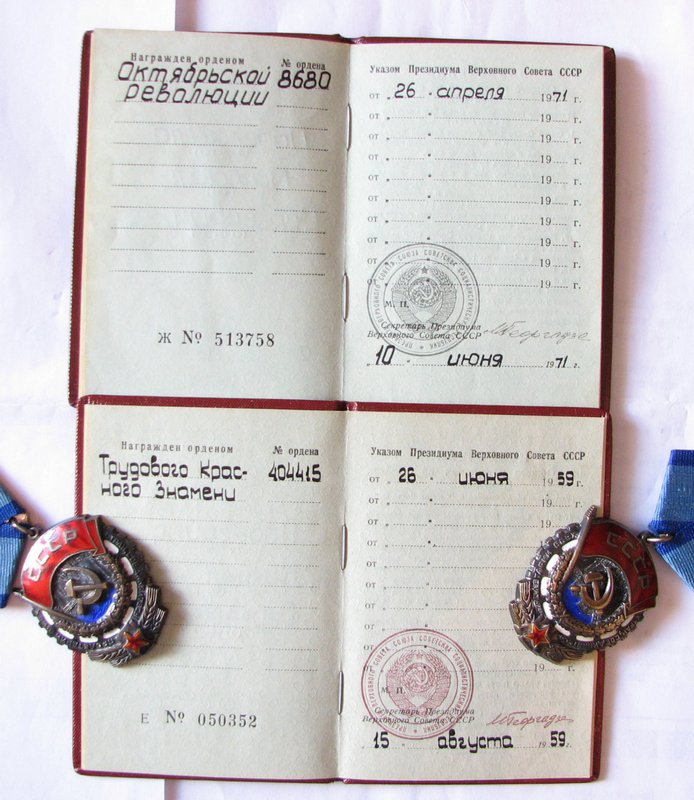 Награжден орденом № ордена
Октябрьской 8680
революции
Ж № 513758
Указом Президиума Верховного Совета СССР
от „ 26 " апреля 1971 г.
от „ " 19 г.
от „ " 19 г.
от „ " 19 г.
от „ " 19 г.
от „ " 19 г.
от „ " 19 г.
от „ " 19 г.
от „ " 19 г.
от 19 г.
М. П.
Секретарь Президиума
Верховного Совета СССР
М Георгадзе
„ 10 " июня 1971 г.
Награжден орденом № ордена
Трудового Крас- 404415
ного Знамени
Е № 050352
Указом Президиума Верховного Совета СССР
от „ 26 " июня 1959 г.
от „ " 19 г.
от „ " 19
от „ " 19
от „ "
от „ "
от „ "
от „ "
от „ "
19 г.
М. П.
Секретарь Президиума
Верховного Совета СССР
МГеоргадзе
„ 15 " августа 1959 г.
СССР
СССР